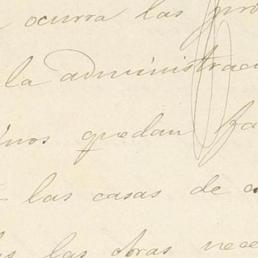 ocurra las
la administrac
quedan fa
las casas de
las obras nece